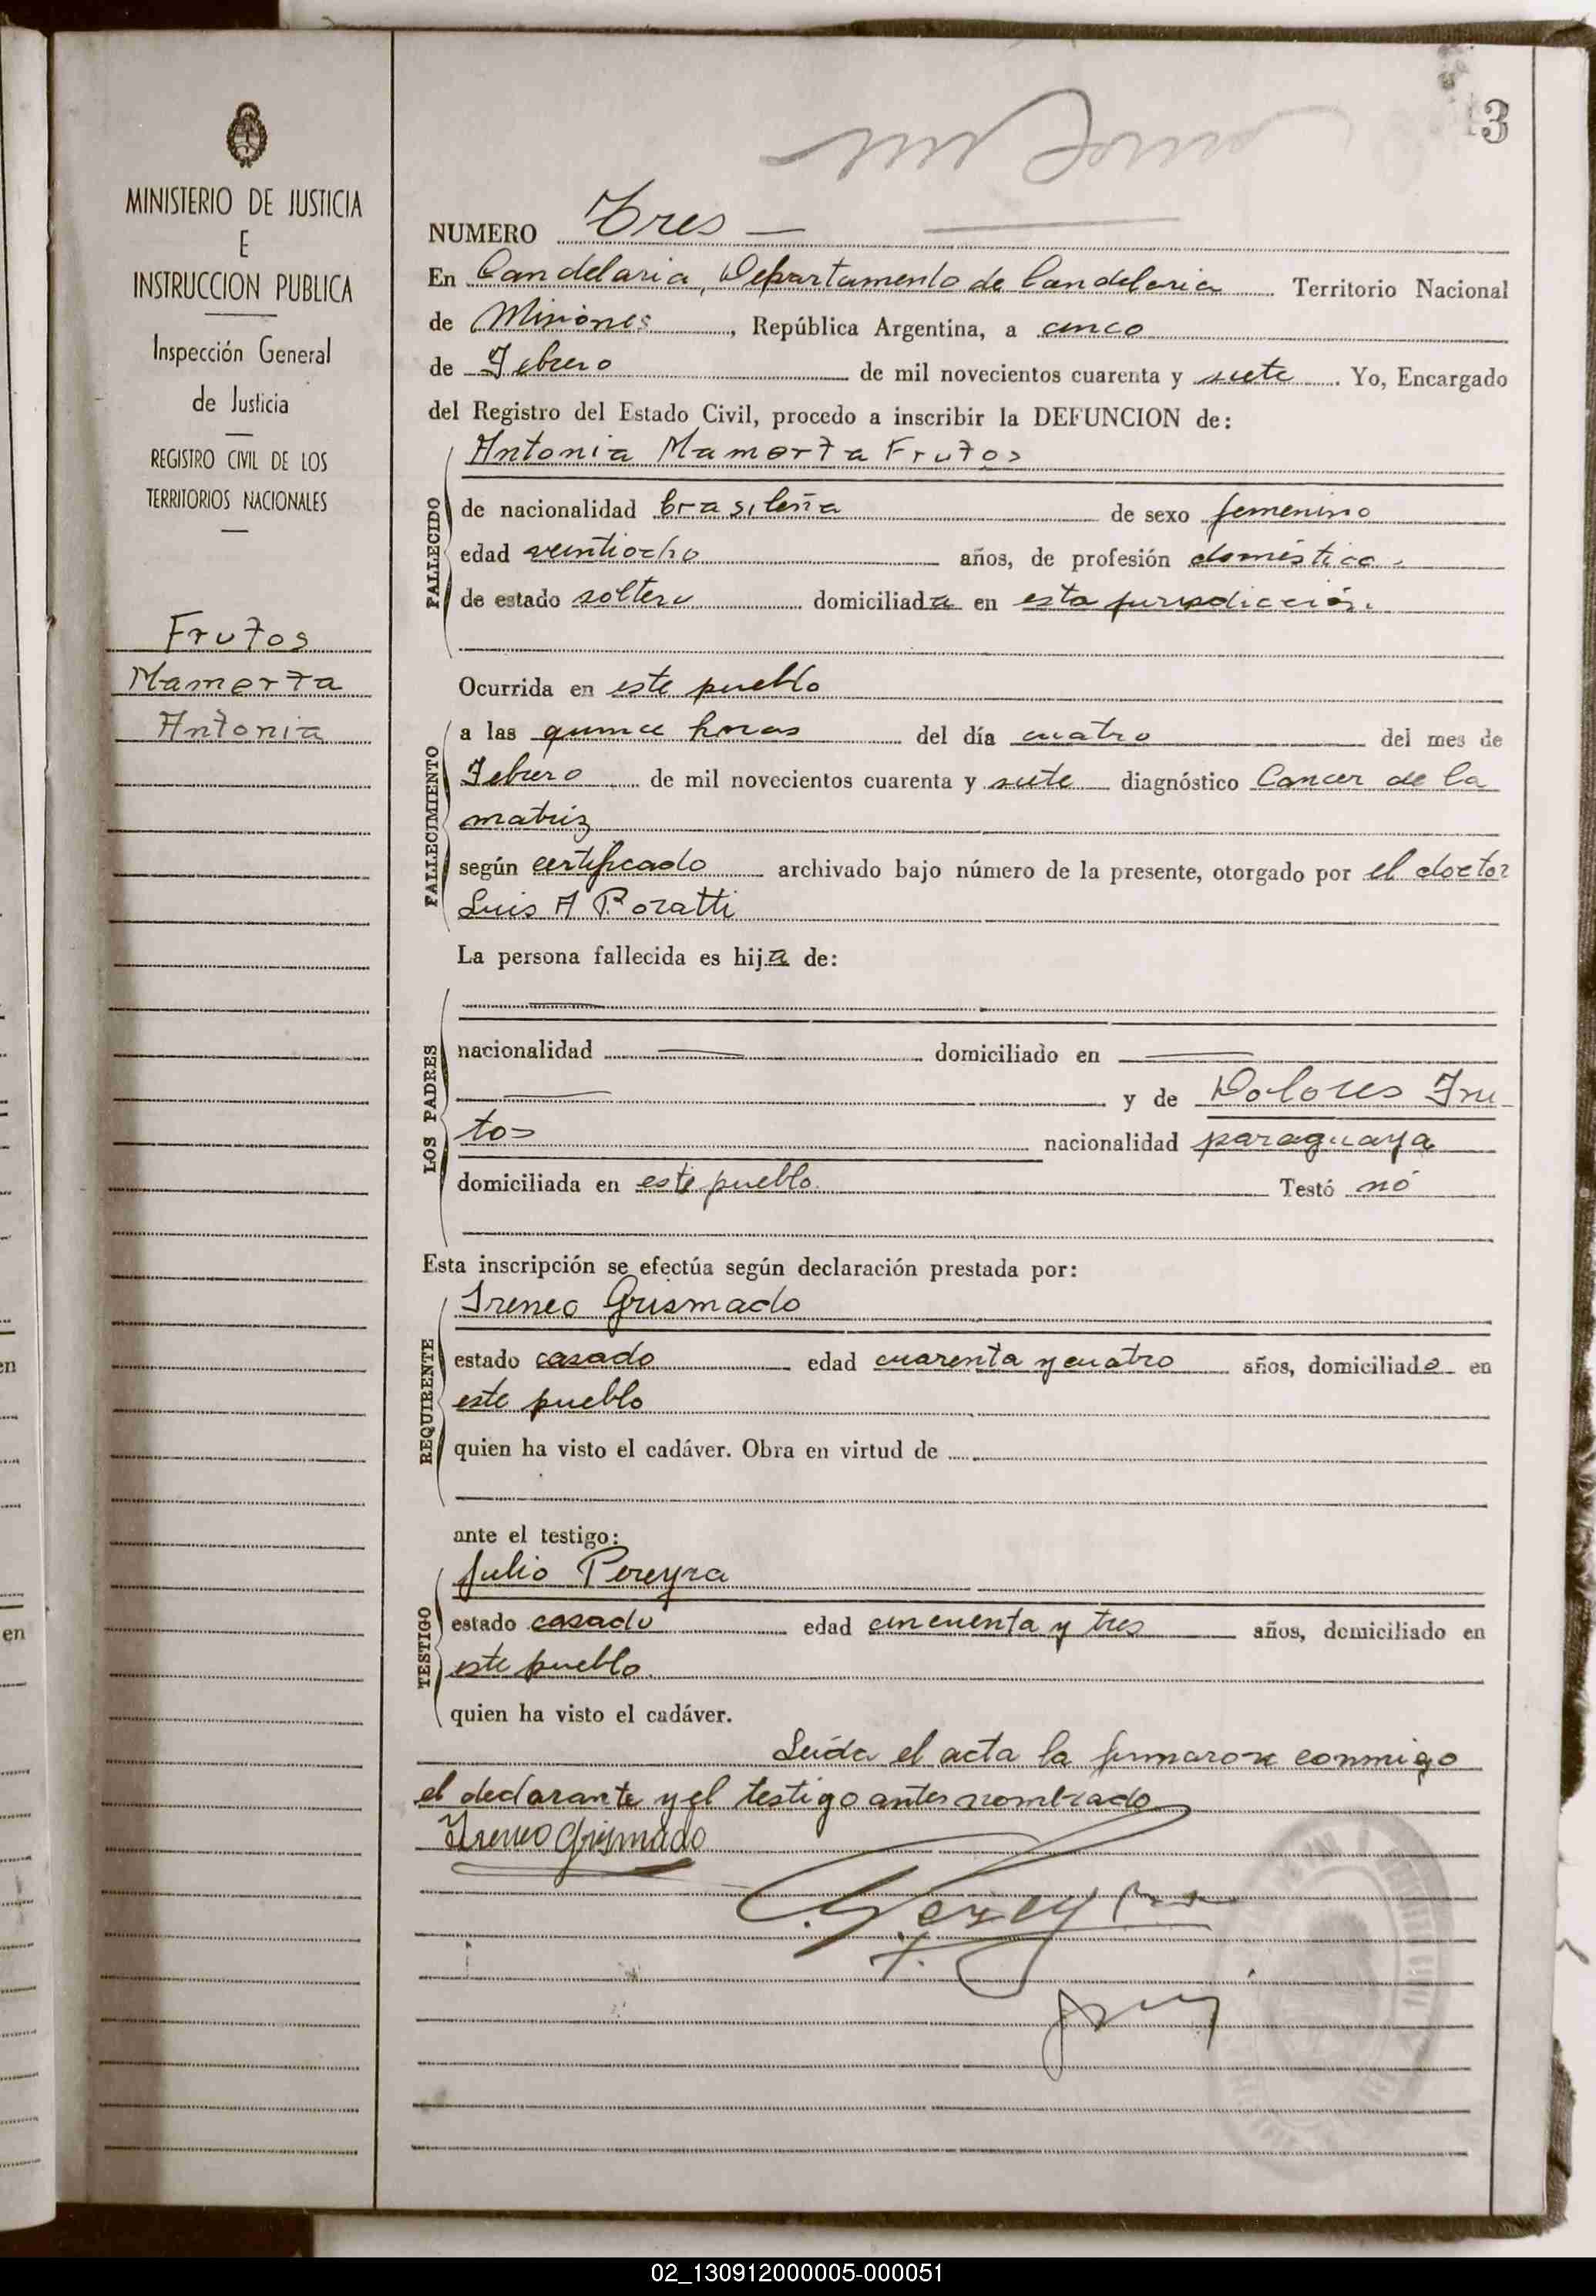 MINISTERIO DE JUSTICIA
E
INSTRUCCION PUBLICA
Inspección General
de Justicia
REGISTRO CIVIL DE LOS
TERRITORIOS NACIONALES
Frutos
Mamerta
Antonia
3
NUMERO Tres
En Candelaria, Departamento de Candelaria Territorio Nacional
de Misiones, República Argentina, a cinco
de Febrero de mil novecientos cuarenta y siete. Yo, Encargado
del Registro del Estado Civil, procedo a inscribir la DEFUNCION de:
Antonia Mamerta Frutos
FALLECIDO
de nacionalidad brasileña de sexo femenino
edad veintiocho años, de profesión doméstica
de estado soltera domiciliada en esta jurisdicción.
Ocurrida en este pueblo
FALLECIMIENTO
a las quince horas del día cuatro del mes de
Febrero de mil novecientos cuarenta y siete diagnóstico Cancer de la
matriz
según certificado archivado bajo número de la presente, otorgado por el doctor
Luis A P. oratti
La persona fallecida es hija de:
LOS PADRES
nacionalidad domiciliado en
y de Dolores Fru-
tos nacionalidad paraguaya
domiciliada en este pueblo. Testó nó
Esta inscripción se efectúa según declaración prestada por:
REQUIRENTE
Ireneo Grismado
estado casado edad cuarenta y cuatro años, domiciliado en
este pueblo
quien ha visto el cadáver. Obra en virtud de
ante el testigo:
TESTIGO
Julio Pereyra
estado casado edad cincuenta y tres años, domiciliado en
este pueblo.
quien ha visto el cadáver.
Leída el acta la firmaron conmigo
el declarante y el testigo antes nombrado
Ireneo Grismado
Pereyra
02_130912000005-000051